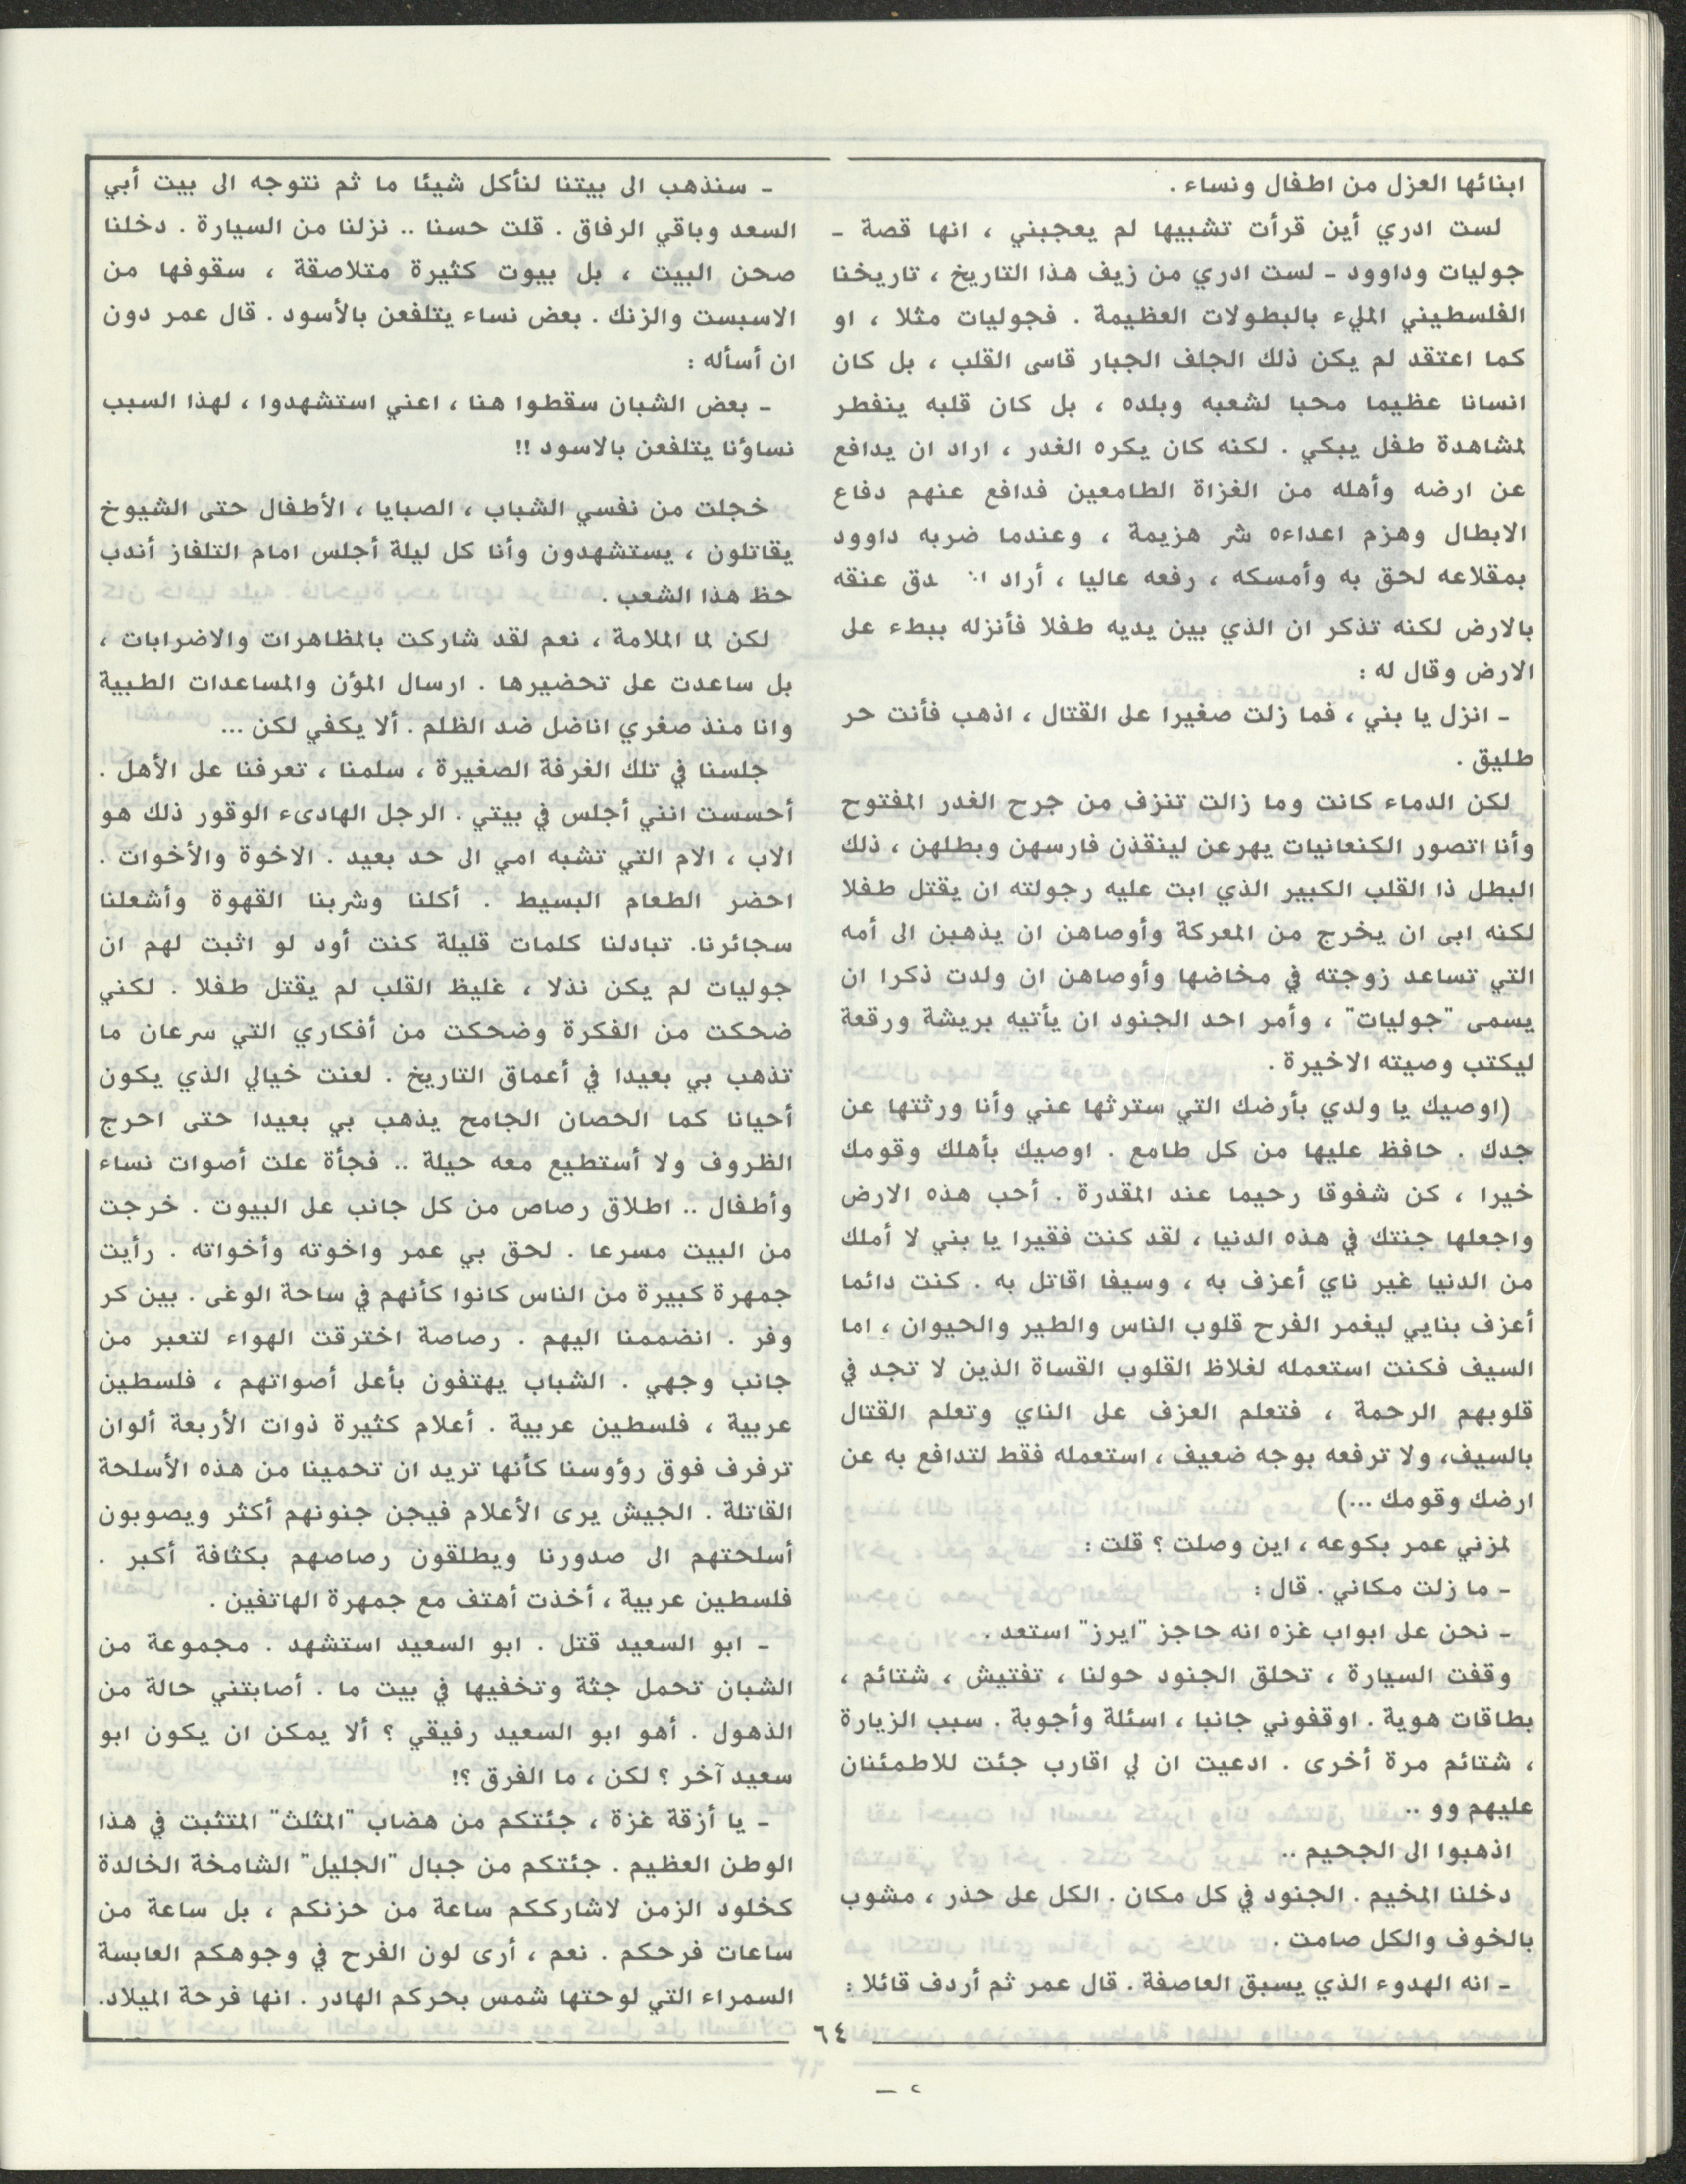 ابنائها العزل من اطفال ونساء .
لست ادري أين قرأت تشبيها لم يعجبني ، انها قصة -
جوليات وداوود - لست ادري من زيف هذا التاريخ ، تاريخنا
الفلسطيني المليء بالبطولات العظيمة . فجوليات مثلا ، او
كما اعتقد لم يكن ذلك الجلف الجبار قاسى القلب ، بل كان
انسانا عظيما محبا لشعبه وبلده ، بل كان قلبه ينفطر
لمشاهدة طفل يبكي . لكنه كان يكره الغدر ، اراد ان يدافع
عن ارضه وأهله من الغزاة الطامعين فدافع عنهم دفاع
الابطال وهزم اعداءه شر هزيمة ، وعندما ضربه داوود
بمقلاعه لحق به وأمسكه ، رفعه عاليا ، أراد دق عنقه
بالارض لكنه تذكر ان الذي بين يديه طفلا فأنزله ببطء على
الارض وقال له :
- انزل يا بني ، فما زلت صغيرا على القتال ، اذهب فأنت حر
طليق .
لكن الدماء كانت وما زالت تنزف من جرح الغدر المفتوح
وأنا اتصور الكنعانيات يهرعن لينقذن فارسهن وبطلهن ، ذلك
البطل ذا القلب الكبير الذي ابت عليه رجولته ان يقتل طفلا
لكنه ابى ان يخرج من المعركة وأوصاهن ان يذهبن الى أمه
التي تساعد زوجته في مخاضها وأوصاهن ان ولدت ذكرا ان
يسمى "جوليات" ، وأمر احد الجنود ان يأتيه بريشة ورقعة
ليكتب وصيته الاخيرة .
(اوصيك يا ولدي بأرضك التي سترثها عني وأنا ورثتها عن
جدك . حافظ عليها من كل طامع . اوصيك بأهلك وقومك
خيرا ، كن شفوقا رحيما عند المقدرة . أحب هذه الارض
واجعلها جنتك في هذه الدنيا ، لقد كنت فقيرا يا بني لا أملك
من الدنيا غير ناي أعزف به ، وسيفا اقاتل به . كنت دائما
أعزف بنايي ليغمر الفرح قلوب الناس والطير والحيوان ، اما
السيف فكنت استعمله لغلاظ القلوب القساة الذين لا تجد في
قلوبهم الرحمة ، فتعلم العزف على الناي وتعلم القتال
بالسيف، ولا ترفعه بوجه ضعيف ، استعمله فقط لتدافع به عن
ارضك وقومك ...)
لمزني عمر بكوعه ، اين وصلت ؟ قلت :
- ما زلت مكاني . قال :
- نحن على ابواب غزه انه حاجز "ايرز" استعد .
وقفت السيارة ، تحلق الجنود حولنا ، تفتيش ، شتائم ،
بطاقات هوية . اوقفوني جانبا ، اسئلة وأجوبة . سبب الزيارة
، شتائم مرة أخرى . ادعيت ان لي اقارب جئت للاطمئنان
عليهم وو ..
اذهبوا الى الجحيم ..
دخلنا المخيم . الجنود في كل مكان . الكل على حذر ، مشوب
بالخوف والكل صامت .
- انه الهدوء الذي يسبق العاصفة . قال عمر ثم أردف قائلا :
- سنذهب الى بيتنا لنأكل شيئا ما ثم نتوجه الى بيت أبي
السعد وباقي الرفاق . قلت حسنا .. نزلنا من السيارة . دخلنا
صحن البيت ، بل بيوت كثيرة متلاصقة ، سقوفها من
الاسبست والزنك . بعض نساء يتلفعن بالأسود . قال عمر دون
ان أسأله :
- بعض الشبان سقطوا هنا ، اعني استشهدوا ، لهذا السبب
نساؤنا يتلفعن بالاسود !!
خجلت من نفسي الشباب ، الصبايا ، الأطفال حتى الشيوخ
يقاتلون ، يستشهدون وأنا كل ليلة أجلس امام التلفاز أندب
حظ هذا الشعب .
لكن لما الملامة ، نعم لقد شاركت بالمظاهرات والاضرابات ،
بل ساعدت على تحضيرها . ارسال المؤن والمساعدات الطبية
وانا منذ صغري اناضل ضد الظلم . ألا يكفي لكن ...
جلسنا في تلك الغرفة الصغيرة ، سلمنا ، تعرفنا على الأهل .
أحسست انني أجلس في بيتي . الرجل الهادىء الوقور ذلك هو
الاب ، الام التي تشبه امي الى حد بعيد . الاخوة والأخوات .
احضر الطعام البسيط . أكلنا وشربنا القهوة وأشعلنا
سجائرنا. تبادلنا كلمات قليلة كنت أود لو اثبت لهم ان
جوليات لم يكن نذلا ، غليظ القلب لم يقتل طفلا . لكني
ضحكت من الفكرة وضحكت من أفكاري التي سرعان ما
تذهب بي بعيدا في أعماق التاريخ . لعنت خيالي الذي يكون
أحيانا كما الحصان الجامح يذهب بي بعيدا حتى احرج
الظروف ولا أستطيع معه حيلة .. فجأة علت أصوات نساء
وأطفال .. اطلاق رصاص من كل جانب على البيوت . خرجت
من البيت مسرعا . لحق بي عمر واخوته وأخواته . رأيت
جمهرة كبيرة من الناس كانوا كأنهم في ساحة الوغى . بين كر
وفر . انضممنا اليهم . رصاصة اخترقت الهواء لتعبر من
جانب وجهي . الشباب يهتفون بأعلى أصواتهم ، فلسطين
عربية ، فلسطين عربية . أعلام كثيرة ذوات الأربعة ألوان
ترفرف فوق رؤوسنا كأنها تريد ان تحمينا من هذه الأسلحة
القاتلة . الجيش يرى الأعلام فيجن جنونهم أكثر ويصوبون
أسلحتهم الى صدورنا ويطلقون رصاصهم بكثافة أكبر .
فلسطين عربية ، أخذت أهتف مع جمهرة الهاتفين .
- ابو السعيد قتل . ابو السعيد استشهد . مجموعة من
الشبان تحمل جثة وتخفيها في بيت ما . أصابتني حالة من
الذهول . أهو ابو السعيد رفيقي ؟ ألا يمكن ان يكون ابو
سعيد آخر ؟ لكن ، ما الفرق ؟!
- يا أزقة غزة ، جئتكم من هضاب "المثلث" المتثبت في هذا
الوطن العظيم . جئتكم من جبال "الجليل" الشامخة الخالدة
كخلود الزمن لاشارككم ساعة من حزنكم ، بل ساعة من
ساعات فرحكم . نعم ، أرى لون الفرح في وجوهكم العابسة
السمراء التي لوحتها شمس بحركم الهادر . انها فرحة الميلاد.
٦٤